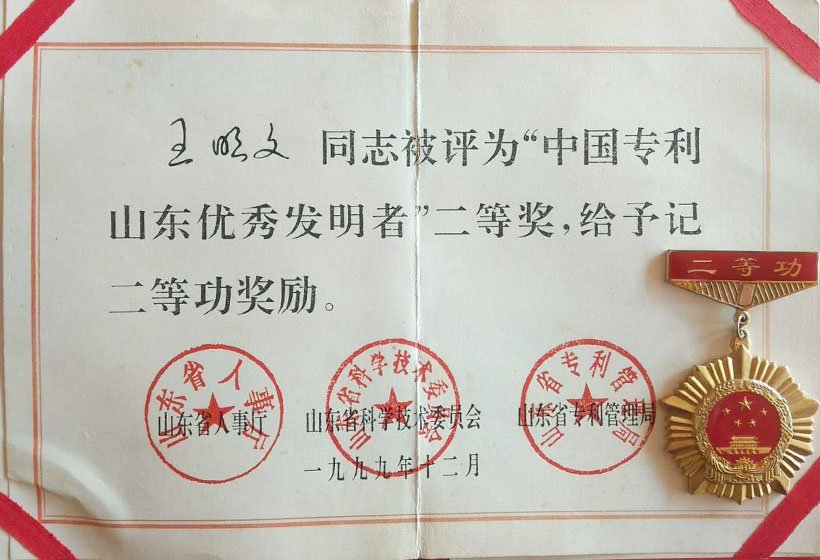 王明文 同志被评为“中国专利
山东优秀发明者”二等奖，给予记
二等功奖励。
二等功
山东省人事厅
山东省科学技术委员会
山东省专利管理局
山东省人事厅
山东省科学技术委员会
山东省专利管理局
一九九九年十二月